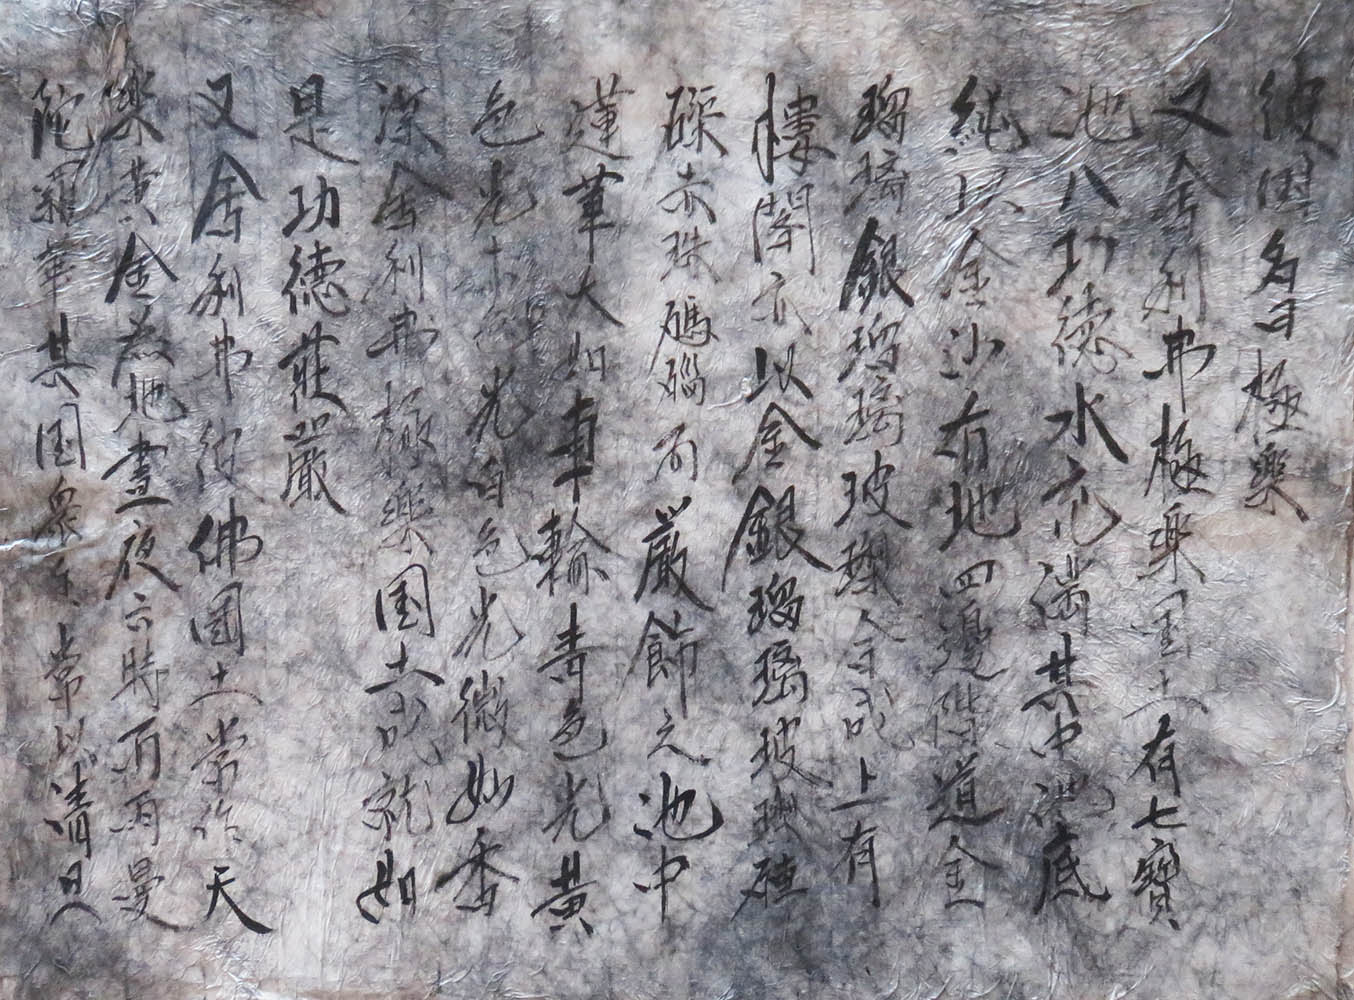 彼國名曰極樂
又舍利弗極樂国土有七寶
池八功德水充滿其中池底
純以金沙布地四邊階道金
瑠璃銀瑠璃玻瓈合成上有
樓閣亦以金銀瑠璃玻瓈硨
磲赤珠碼碯而嚴飾之池中
蓮華大如車輪青色光黃
色光赤色赤光白色光微妙香
潔舍利弗極樂国土成就如
是功德莊嚴
又舍利弗彼佛國土常作天
樂黃金為地晝夜六時而雨曼
陀羅華其国衆生常以清旦